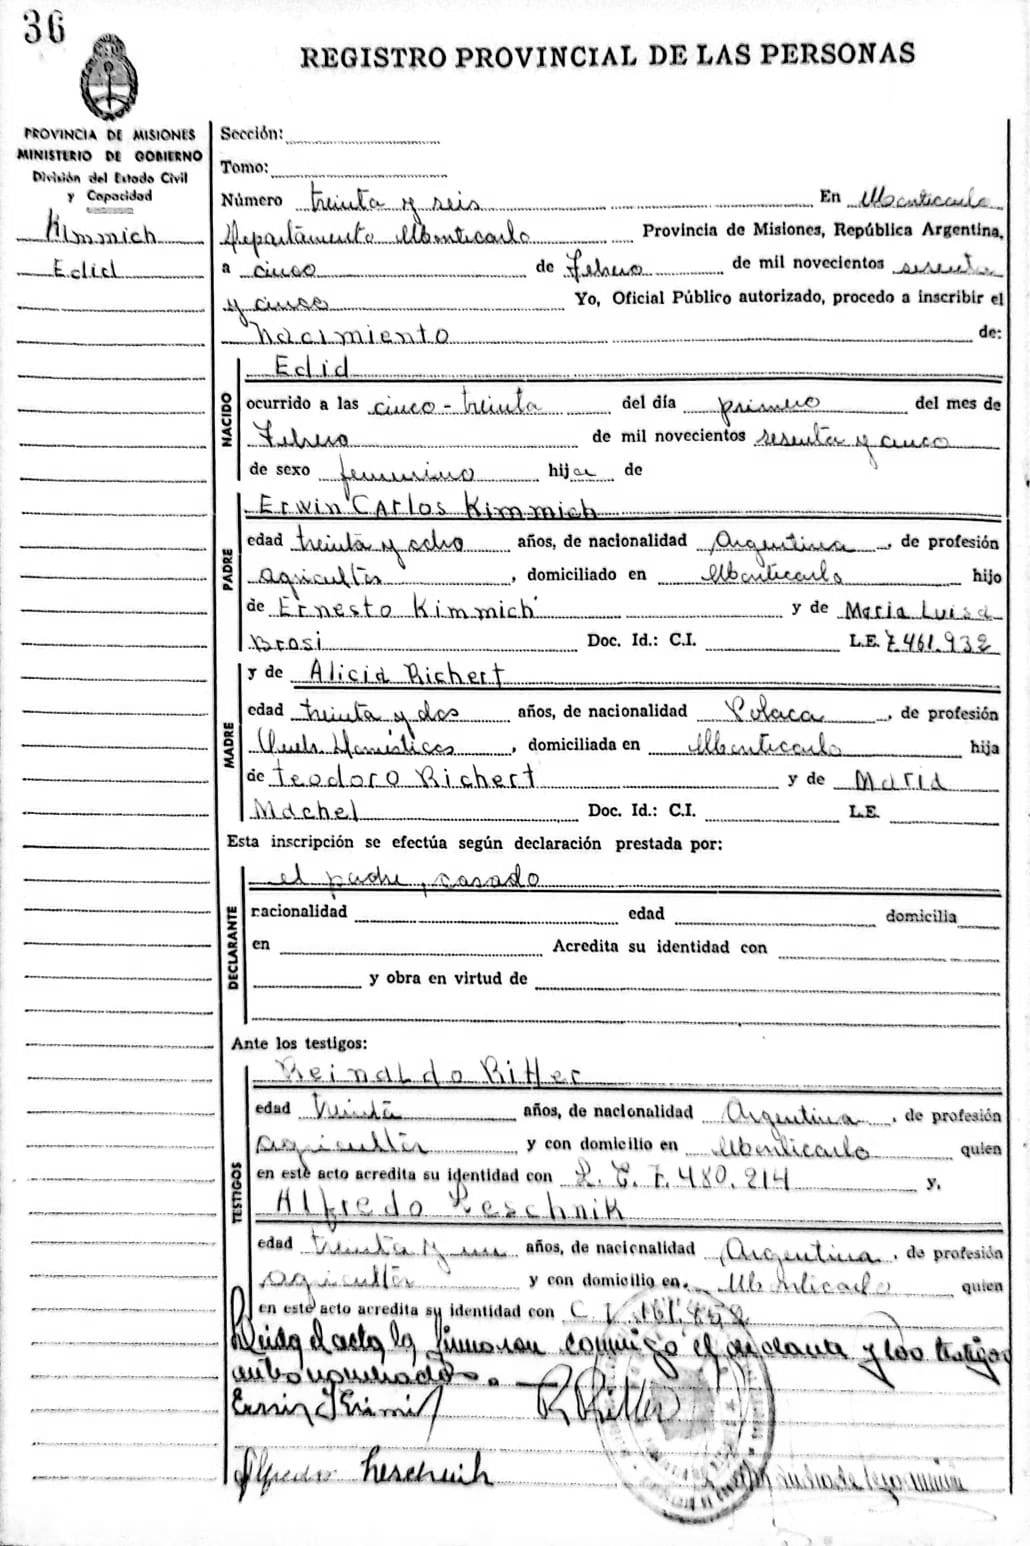 36
REGISTRO PROVINCIAL DE LAS PERSONAS
PROVINCIA DE MISIONES
MINISTERIO DE GOBIERNO
División del Estado Civil
y Capacidad
Kimmich
Edid
Sección:
Tomo:
Número treinta y seis En Montecarlo
Departamento Montecarlo Provincia de Misiones, República Argentina,
a cinco de Febrero de mil novecientos sesenta
y cinco Yo, Oficial Público autorizado, procedo a inscribir el
Nacimiento de:
NACIDO
Edid
ocurrido a las cinco - treinta del día primero del mes de
Febrero de mil novecientos sesenta y cinco
de sexo femenino hija de
PADRE
Erwin Carlos Kimmich
edad treinta y ocho años, de nacionalidad Argentina, de profesión
agricultor, domiciliado en Montecarlo hijo
de Ernesto Kimmich y de Maria Luisa
Brosi Doc. Id.: C.I. L.E. 7.461.932
MADRE
y de Alicia Richert
edad treinta y dos años, de nacionalidad Polaca, de profesión
Queh. Domésticos, domiciliada en Montecarlo hija
de Teodoro Richert y de Maria
Machel Doc. Id.: C.I. L.E.
Esta inscripción se efectúa según declaración prestada por:
DECLARANTE
el padre, casado
nacionalidad edad domicilia
en Acredita su identidad con
y obra en virtud de
Ante los testigos:
TESTIGOS
Reinaldo Ritter
edad treinta años, de nacionalidad Argentina, de profesión
agricultor y con domicilio en Montecarlo quien
en este acto acredita su identidad con L. E. 7.480.214 y,
Alfredo Leschnik
edad treinta y un años, de nacionalidad Argentina, de profesión
agricultor y con domicilio en Montecarlo quien
en este acto acredita su identidad con C. I. 161.
Leida el acta la firmaron conmigo el declarante y los testigos
antes nombrados.
Erwin Kimmich R Ritter
Alfredo Leschnik